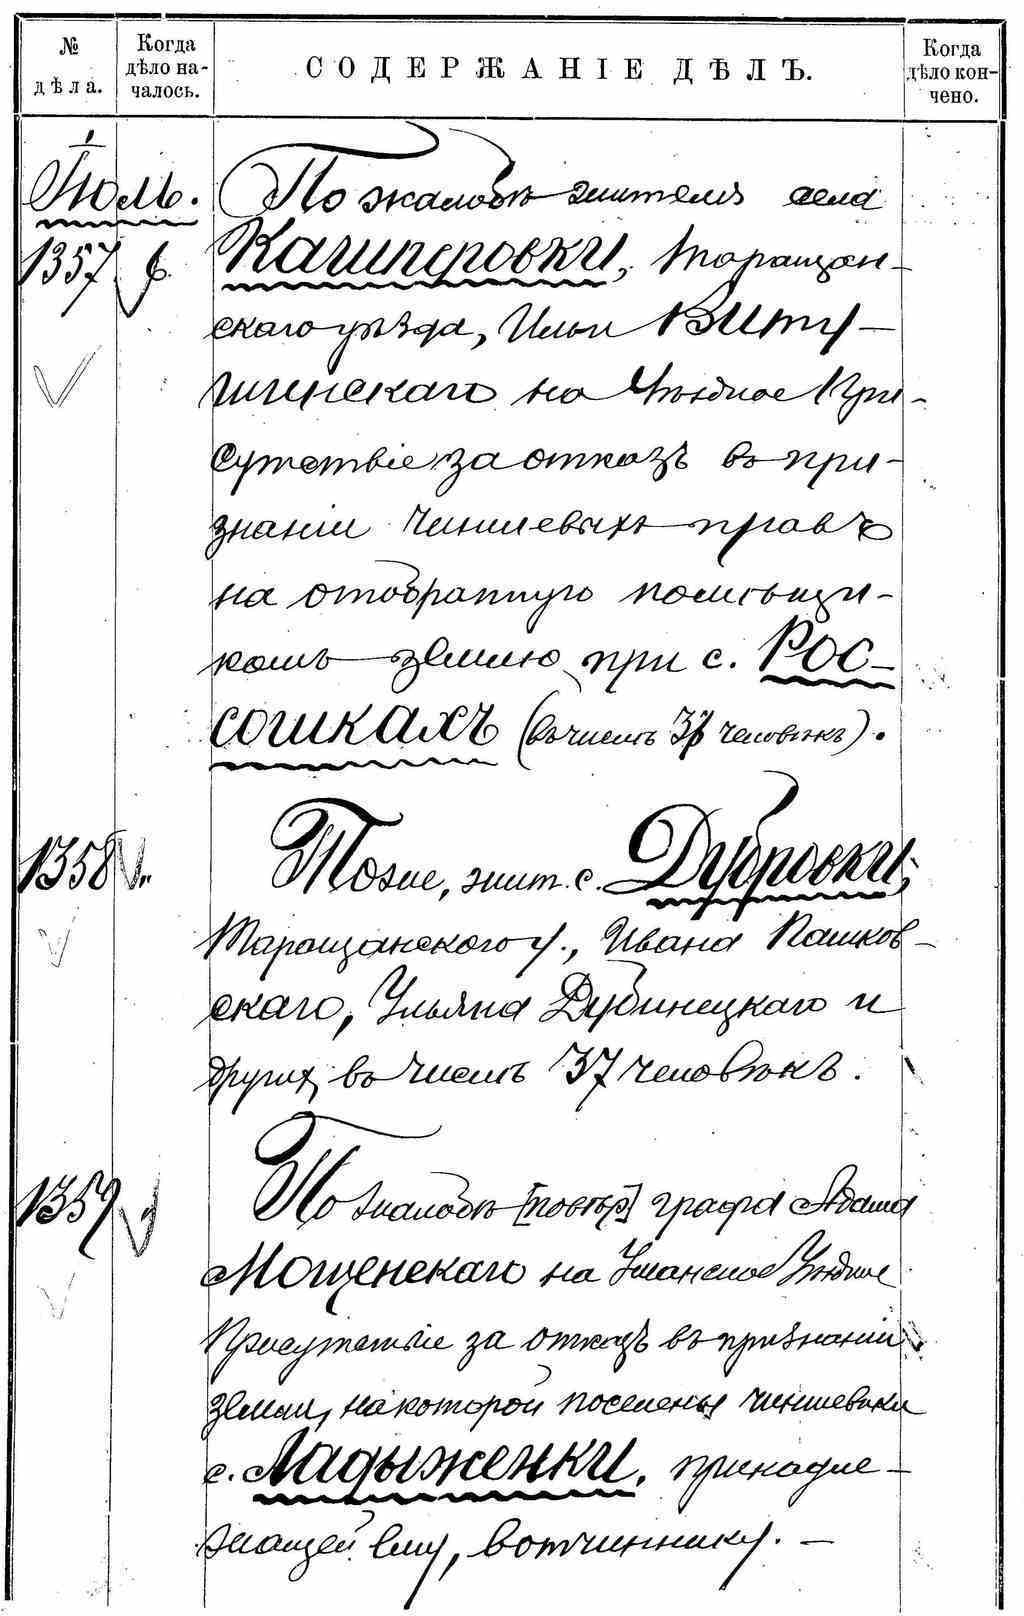 № дѣла.
Когда дѣло началось.
СОДЕРЖАНІЕ ДѢЛЪ.
Когда дѣло кончено.
Іюль.
По жалобѣ жителя села
1357
Кашперовки, Таращан-
скаго уѣзда, Ильи Виту-
шинскаго на Уѣздное При-
сутствіе за отказъ въ при-
знаніи чиншевыхъ правъ
на отобранную помѣщи-
комъ землю при с. Рос-
сошкахъ (въ числѣ 37 человѣкъ).
1358
Тоже, жит. с. Дубровки,
Таращанского у., Ивана Пашков-
скаго, Ульяна Дубинецкаго и
других, въ числѣ 37 человѣкъ.
1359
По жалобѣ [повѣр] графа Адама
Мощенскаго на Уманское Уѣздное
Присутствіе за отказъ въ признаніи
земли, на которой поселены чиншевики
с. Ладыженки, принадле-
жащей ему, вотчиннику. —